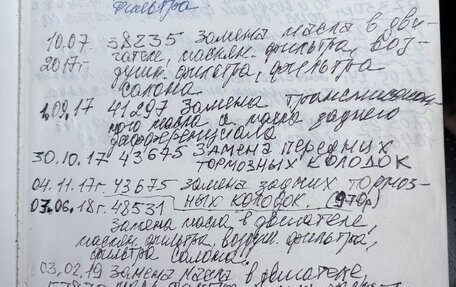 фильтра
10.07. 38235 Замена масла в дви-
2017г. гателе, маслян. фильтра, воз-
душн. фильтра, фильтра
салона
1.09.17 41297 Замена трансмиссион-
ного масла и масла заднего
дифференциала
30.10.17г. 43675 Замена передних
тормозных колодок
04.11.17г. 43675 Замена задних тормоз-
03.06.18г. 48531 ных колодок. (970р)
Замена масла в двигателе,
маслян. фильтра, воздуш. фильтра,
фильтра салона.
03.02.19 Замена масла в двигателе,
фильтра